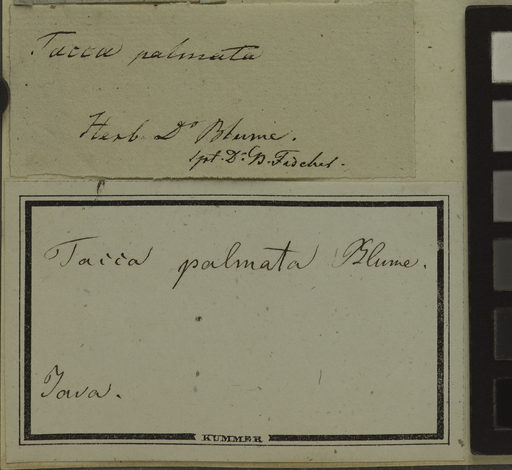 Tacca palmata
Herb. Dr Blume.
spt. Dr. B. Fischer.
Tacca palmata Blume.
Java.
KUMMER